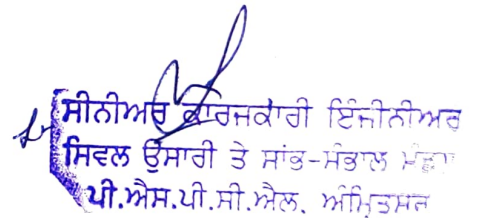 ਸੀਨੀਅਰ ਕਾਰਜਕਾਰੀ ਇੰਜੀਨੀਅਰ
ਸਿਵਲ ਉਸਾਰੀ ਤੇ ਸਾਂਭ-ਸੰਭਾਲ ਮੰਡਲ
ਪੀ.ਐਸ.ਪੀ.ਸੀ.ਐਲ. ਅੰਮ੍ਰਿਤਸਰ